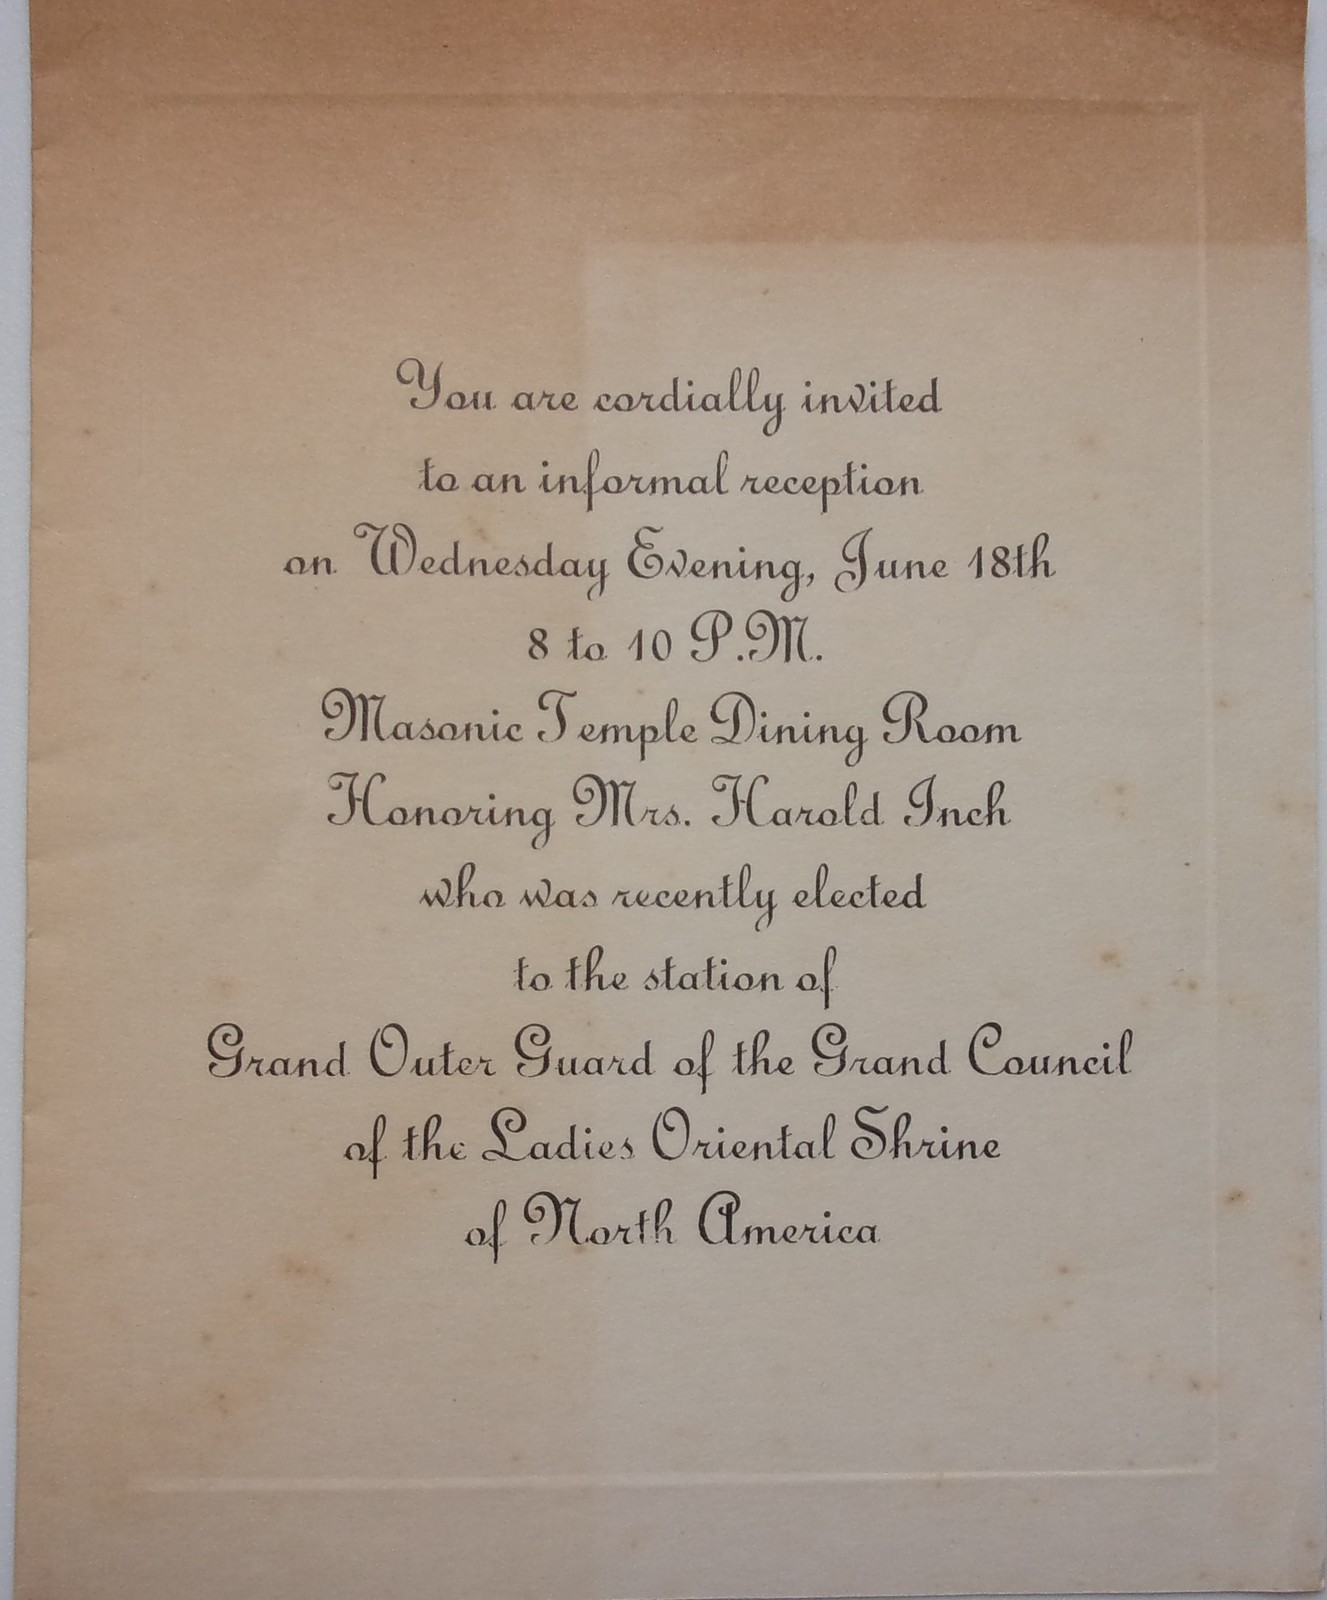 You are cordially invited
to an informal reception
on Wednesday Evening, June 18th
8 to 10 P.M.
Masonic Temple Dining Room
Honoring Mrs. Harold Inch
who was recently elected
to the station of
Grand Outer Guard of the Grand Council
of the Ladies Oriental Shrine
of North America